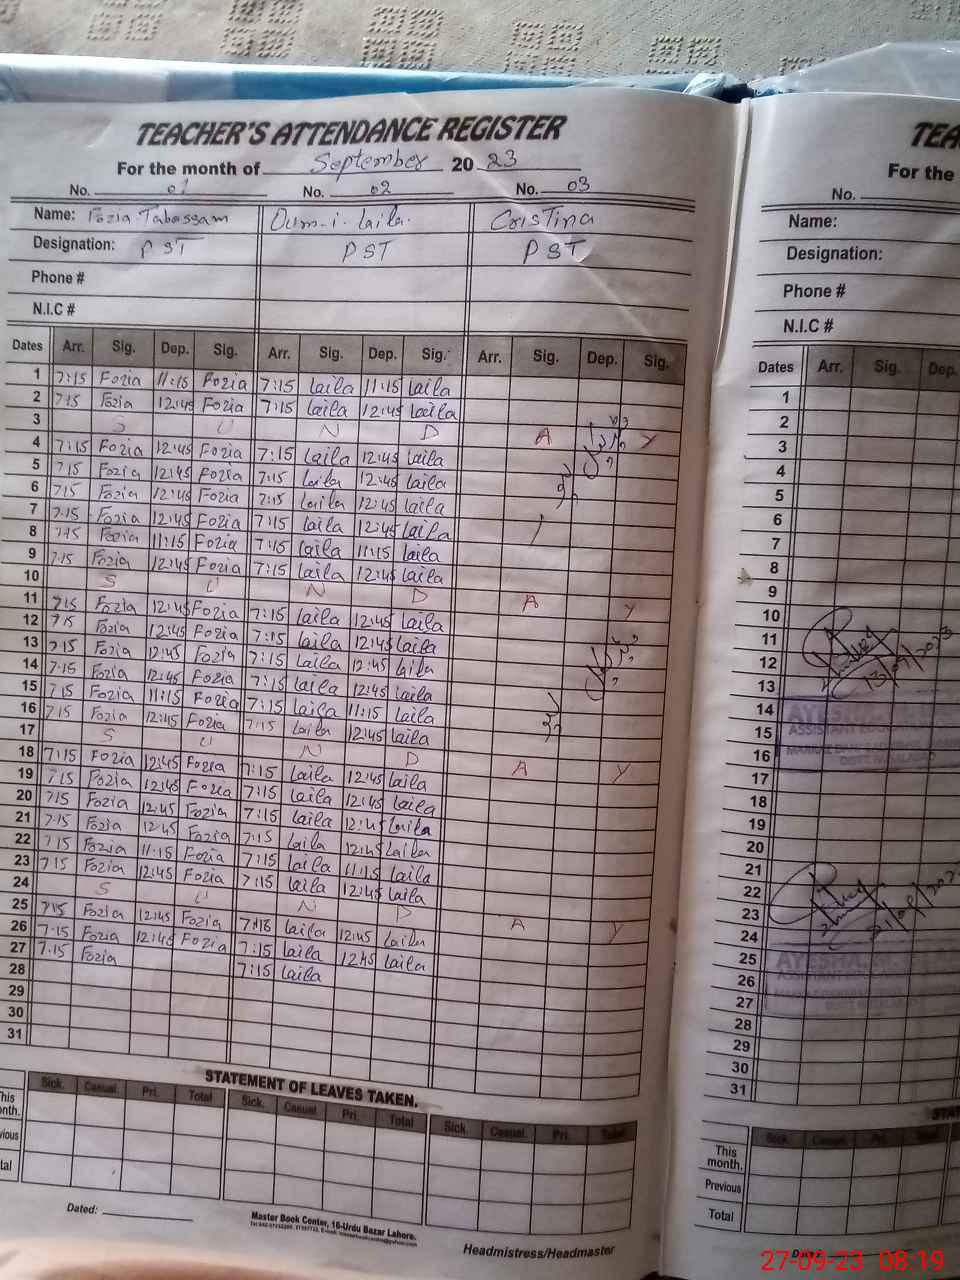 TEACHER'S ATTENDANCE REGISTER
For the month of September 2023
No. 01 No. 02 No. 03
Name: Fozia Tabassam Oum-i-laila Cristina
Designation: PST PST PST
Phone #
N.I.C #
Dates Arr. Sig. Dep. Sig. Arr. Sig. Dep. Sig. Arr. Sig. Dep. Sig.
1 7:15 Fozia 11:15 Fozia 7:15 laila 11:15 laila
2 7:15 Fozia 12:45 Fozia 7:15 laila 12:45 laila
3 S U N D A Y
4 7:15 Fozia 12:45 Fozia 7:15 laila 12:45 laila
5 7:15 Fozia 12:45 Fozia 7:15 laila 12:45 laila
6 7:15 Fozia 12:45 Fozia 7:15 laila 12:45 laila
7 7:15 Fozia 12:45 Fozia 7:15 laila 12:45 laila
8 7:15 Fozia 11:15 Fozia 7:15 laila 11:15 laila
9 7:15 Fozia 12:45 Fozia 7:15 laila 12:45 laila
10 S U N D A Y
11 7:15 Fozia 12:45 Fozia 7:15 laila 12:45 laila
12 7:15 Fozia 12:45 Fozia 7:15 laila 12:45 laila
13 7:15 Fozia 12:45 Fozia 7:15 laila 12:45 laila
14 7:15 Fozia 12:45 Fozia 7:15 laila 12:45 laila
15 7:15 Fozia 11:15 Fozia 7:15 laila 11:15 laila
16 7:15 Fozia 12:45 Fozia 7:15 laila 12:45 laila
17 S U N D A Y
18 7:15 Fozia 12:45 Fozia 7:15 laila 12:45 laila
19 7:15 Fozia 12:45 Fozia 7:15 laila 12:45 laila
20 7:15 Fozia 12:45 Fozia 7:15 laila 12:45 laila
21 7:15 Fozia 12:45 Fozia 7:15 laila 12:45 laila
22 7:15 Fozia 11:15 Fozia 7:15 laila 11:15 laila
23 7:15 Fozia 12:45 Fozia 7:15 laila 12:45 laila
24 S U N D A Y
25 7:15 Fozia 12:45 Fozia 7:18 laila 12:45 laila
26 7:15 Fozia 12:45 Fozia 7:15 laila 12:45 laila
27 7:15 Fozia 7:15 laila
28
29
30
31
STATEMENT OF LEAVES TAKEN.
Sick. Casual. Pri. Total Sick. Casual. Pri. Total Sick. Casual. Pri. Total
This
nth.
vious
tal
Dated:
Master Book Center, 16-Urdu Bazar Lahore.
Headmistress/Headmaster
TEA
For the
No.
Name:
Designation:
Phone #
N.I.C #
Dates Arr. Sig. Dep.
1
2
3
4
5
6
7
8
9
10
11
12
13 13/09/2023
14
15
16
17
18
19
20
21
22
23
24
25
26
27
28
29
30
31
AYESHA
ASSISTANT EDUCATION
STAT
Sick. Casual. Pri.
This
month.
Previous
Total
27-09-23 08:19